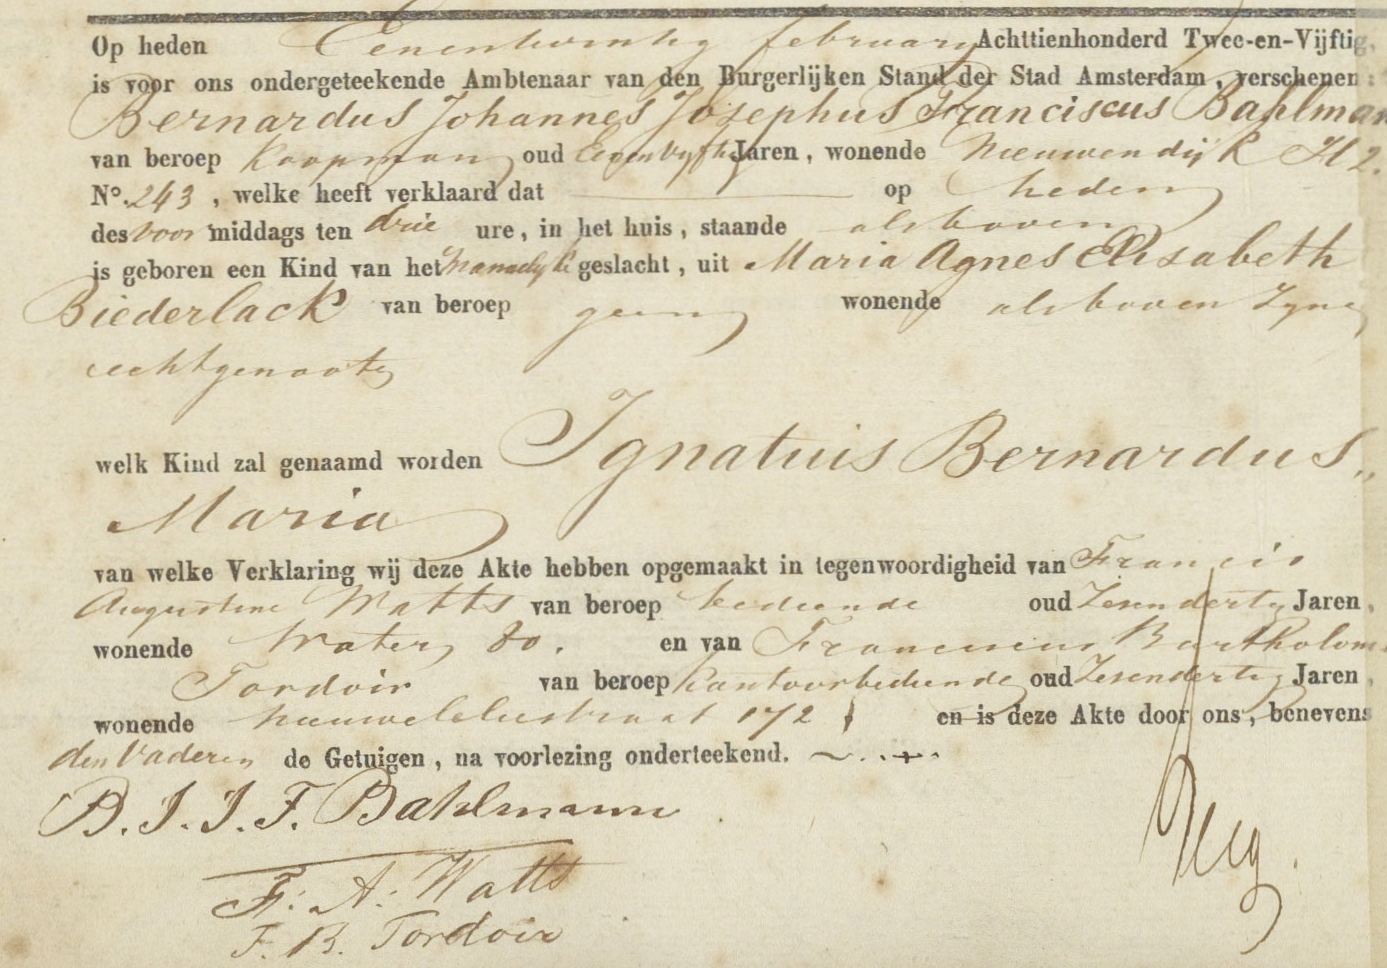 Op heden Eenentwintig february Achttienhonderd Twee-en-Vijftig,
is voor ons ondergeteekende Ambtenaar van den Burgerlijken Stand der Stad Amsterdam, verschenen:
Bernardus Johannes Josephus Franciscus Bahlman
van beroep Koopman oud Eenenvyftig Jaren, wonende Nieuwendijk H 2.
No. 243, welke heeft verklaard dat op heden
des voor middags ten drie ure, in het huis, staande als boven
is geboren een Kind van het Mannelyke geslacht, uit Maria Agnes Elisabeth
Biederlack van beroep geen wonende als boven zyne
echtgenoote
welk Kind zal genaamd worden Ignatuis Bernardus
Maria
van welke Verklaring wij deze Akte hebben opgemaakt in tegenwoordigheid van Francis
Augustine Watts van beroep bediende oud Zesendertig Jaren,
wonende Water 80. en van Franciscus Bartholom
Tordoir van beroep Kantoorbediende oud Zesendertig Jaren,
wonende nieuwe 172 en is deze Akte door ons, benevens
den Vader en de Getuigen, na voorlezing onderteekend.
B. J. J. F. Bahlmann
F. A. Watts
F. B. Tordoir